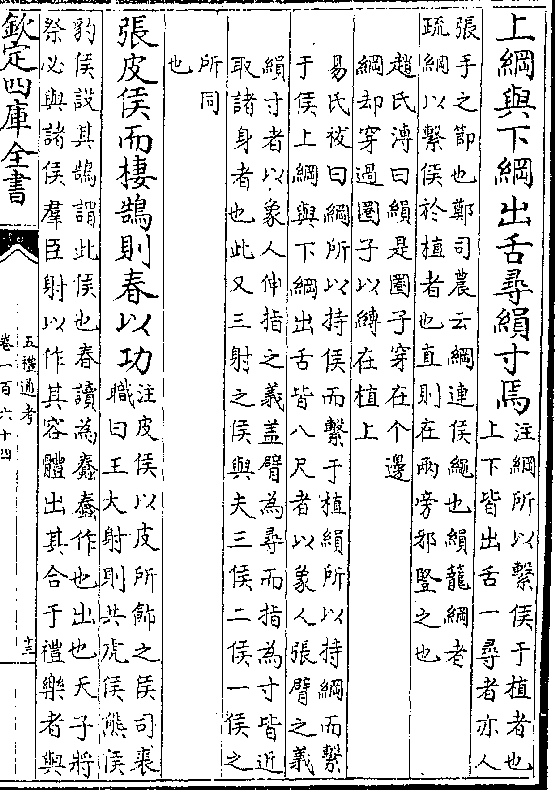 上綱與下綱出舌尋縜寸焉注綱所以繫侯于植者也
上下皆出舌一尋者亦人
張手之節也鄭司農云綱連侯繩也縜籠綱者
疏綱以繫侯於植者也直則在兩旁邪豎之也
趙氏溥曰縜是圈子穿在个邊
綱却穿過圈子以縳在植上
易氏祓曰綱所以持侯而繫于植縜所以持綱而繫
于侯上綱與下綱出舌皆八尺者以象人張臂之義
縜寸者以象人伸指之義盖臂為尋而指為寸皆近
取諸身者也此又三射之侯與夫三侯二侯一侯之
所同
也
張皮侯而棲鵠則春以功注皮侯以皮所飾之侯司裘
職曰王大射則共虎侯熊侯
豹侯設其鵠謂此侯也春讀為蠢蠢作也出也天子將
祭必與諸侯羣臣射以作其容體出其合于禮樂者與
欽定四庫全書
五禮通考
卷一百六十四
十三